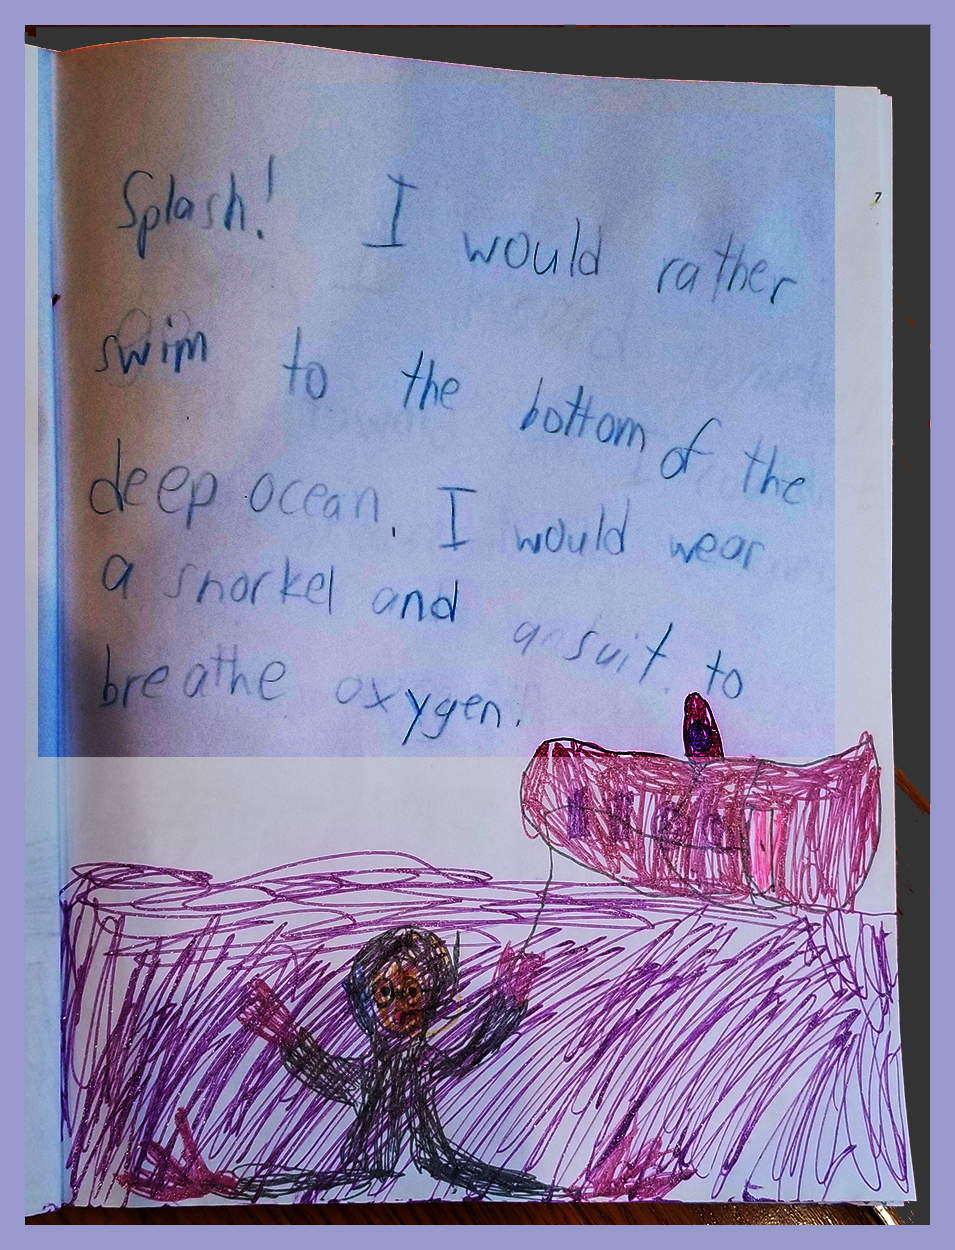 7
Splash! I would rather
swim to the bottom of the
deep ocean. I would wear
a snorkel and a suit to
breathe oxygen.